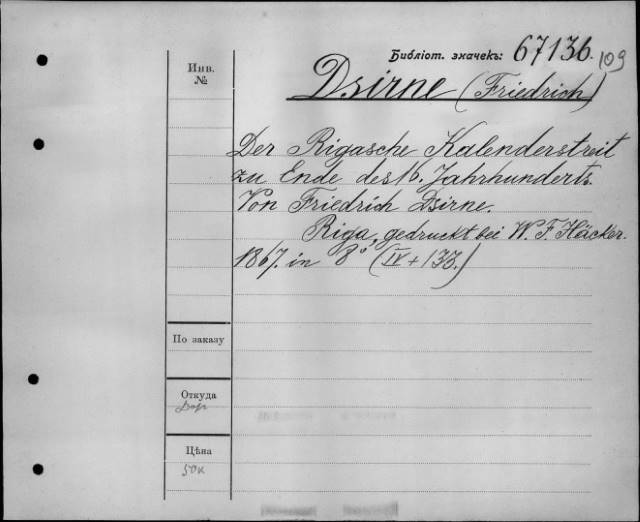 Библіот. значекъ: 67136. 109
Инв.
№
Dsirne (Friedrich)
Der Rigasche Kalenderstreit
zu Ende des 16. Jahrhunderts.
Von Friedrich Dsirne.
Riga, gedruckt bei W. F. Häcker.
1867. in 8° (IV + 133.)
По заказу
Откуда
Дар
Цѣна
50к